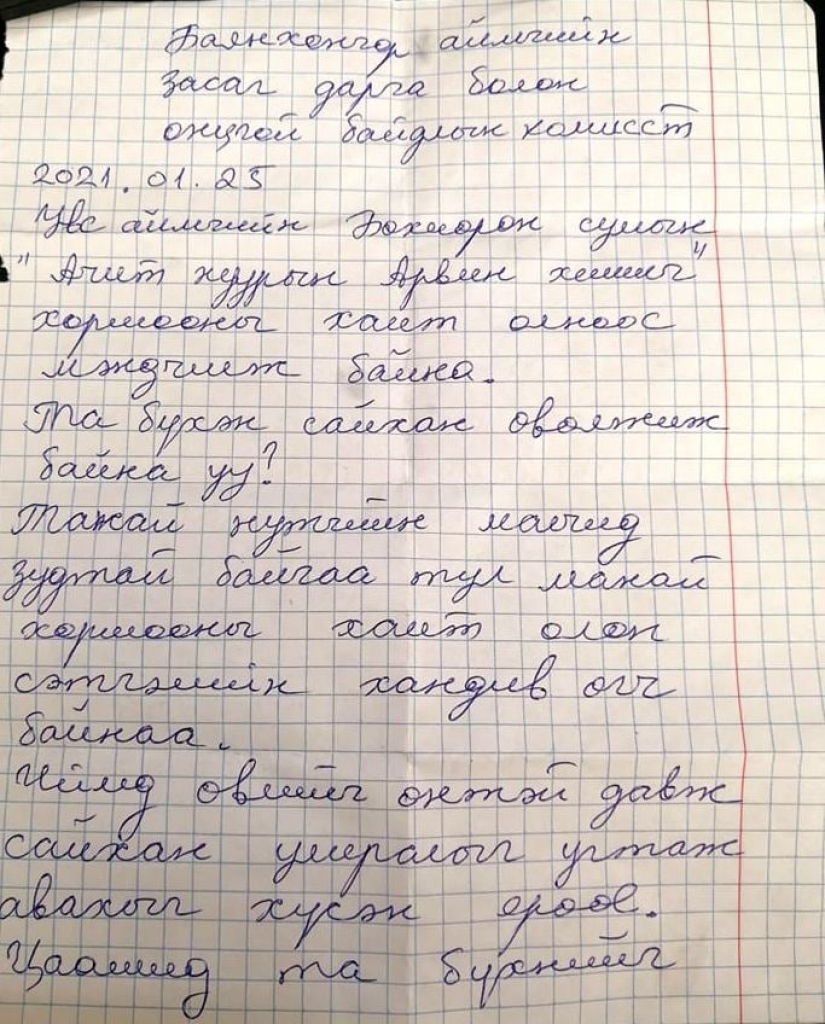 Баянхонгор аймгийн
засаг дарга болон
онцгой байдлын комисст
2021.01.25
Увс аймгийн Бөхмөрөн сумын
"Ачит нуурын Арвин хишиг"
хоршооны хамт олноос
мэндчилж байна.
Та бүхэн сайхан өвөлжиж
байна уу?
Танай нутгийн малчид
зудтай байгаа тул манай
хоршооны хамт олон
сэтгэлийн хандив өгч
байнаа.
Иймд өвлийг өнтэй давж
сайхан улиралыг угтаж
авахыг хүсэн ерөөе.
Цаашид та бүхнийг